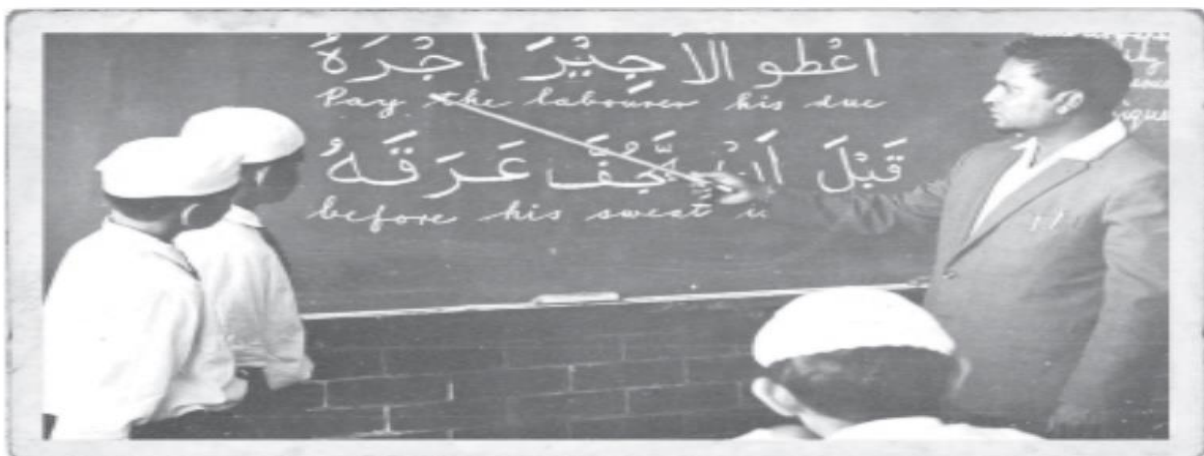 اَعْطُو الْاَجِيْرَ اَجْرَهُ
Pay the labourer his due
قَبْلَ اَنْ يَّجُفَّ عَرَقَهُ
before his sweat is